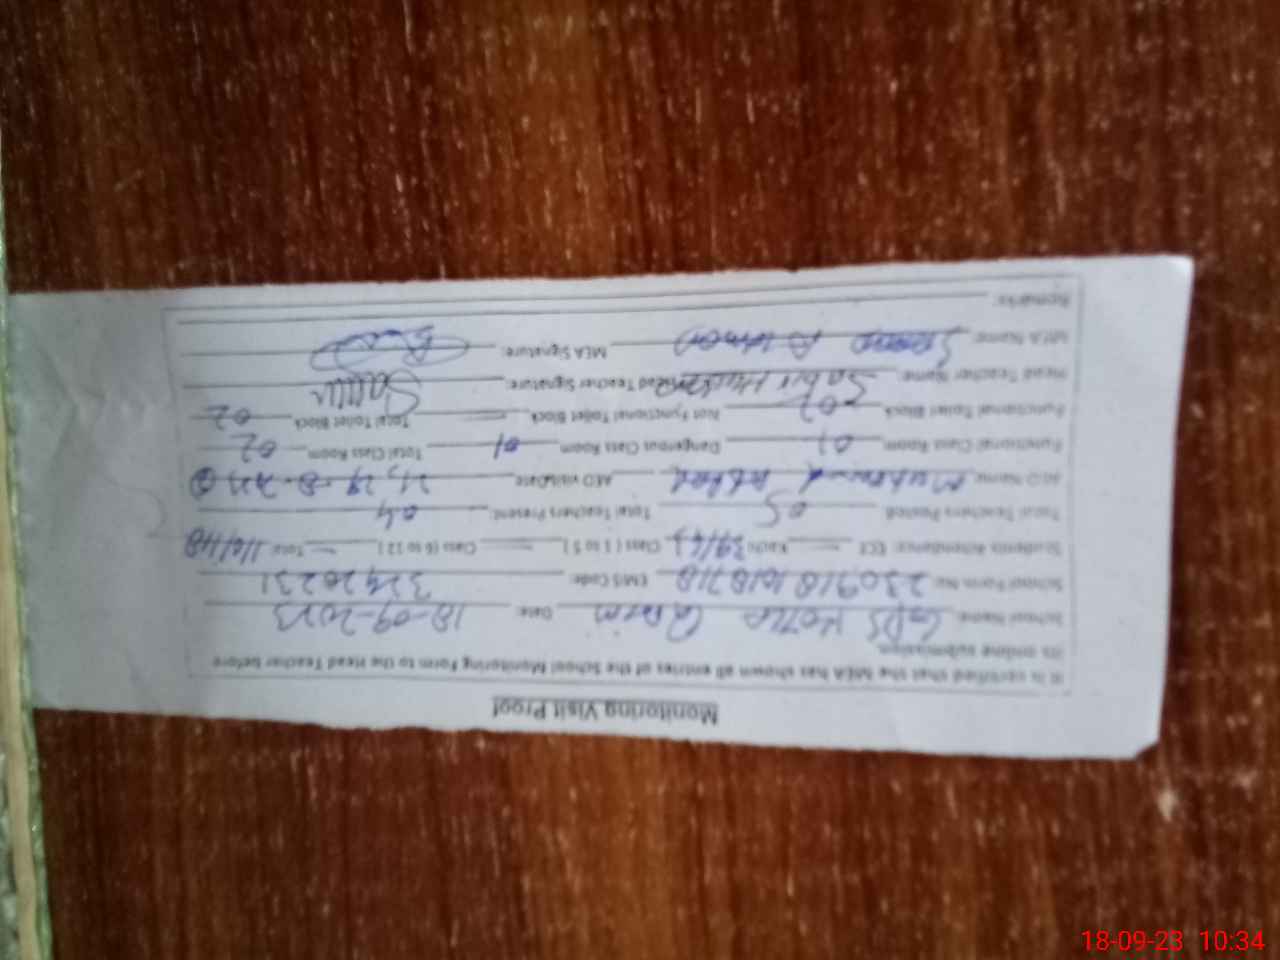 Monitoring Visit Proof
It is certified that the MEA has shown all entries of the School Monitoring Form to the Head Teacher before
its online submission.
School Name: GPS Kotla Qaim Date: 18-09-2023
School Form No: EMIS Code: 32420231
Students Attendance: ECE — Kachi 39/63 Class (1 to 5) — Class (6 to 12) — Total 116/148
Total Teachers Posted 05 Total Teachers Present: 04
AEO Name: Muhammad AEO Visit Date
Functional Class Room 01 Dangerous Class Room 01 Total Class Room 02
Functional Toilet Block 02 Not Functional Toilet Block — Total Toilet Block 02
Head Teacher Name: Sabir Head Teacher Signature:
MEA Name: MEA Signature:
Remarks:
18-09-23 10:34